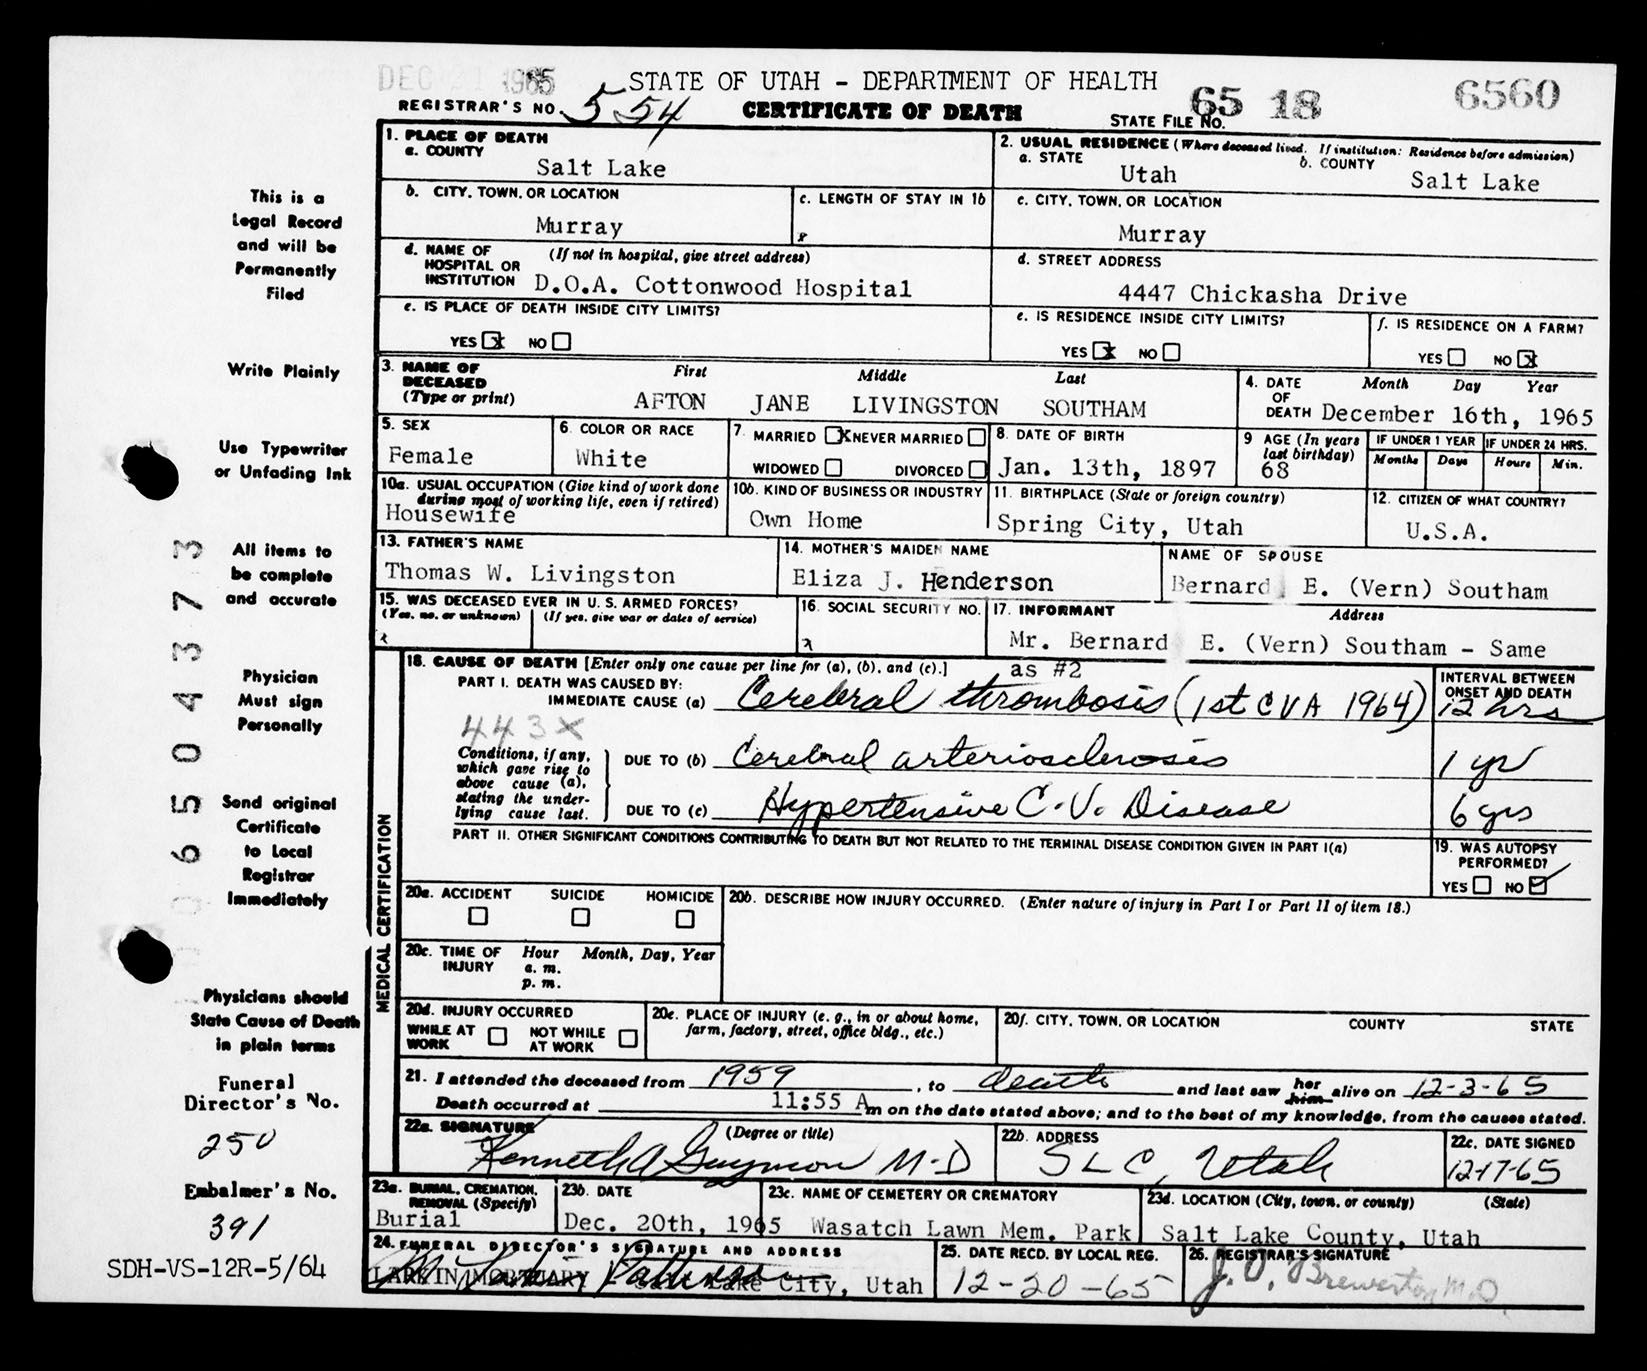 DEC 21 1965
STATE OF UTAH - DEPARTMENT OF HEALTH
REGISTRAR'S NO. 554
CERTIFICATE OF DEATH
STATE FILE NO. 65 18 6560
1. PLACE OF DEATH
a. COUNTY
Salt Lake
2. USUAL RESIDENCE (Where deceased lived. If institution: Residence before admission)
a. STATE
Utah
b. COUNTY
Salt Lake
b. CITY, TOWN, OR LOCATION
Murray
c. LENGTH OF STAY IN 1b
c. CITY, TOWN, OR LOCATION
Murray
d. NAME OF HOSPITAL OR INSTITUTION
(If not in hospital, give street address)
D.O.A. Cottonwood Hospital
d. STREET ADDRESS
4447 Chickasha Drive
e. IS PLACE OF DEATH INSIDE CITY LIMITS?
YES X NO
e. IS RESIDENCE INSIDE CITY LIMITS?
YES X NO
f. IS RESIDENCE ON A FARM?
YES NO X
3. NAME OF DECEASED
(Type or print)
First Middle Last
AFTON JANE LIVINGSTON SOUTHAM
4. DATE OF DEATH
Month Day Year
December 16th, 1965
5. SEX
Female
6. COLOR OR RACE
White
7. MARRIED X NEVER MARRIED
WIDOWED DIVORCED
8. DATE OF BIRTH
Jan. 13th, 1897
9 AGE (In years last birthday)
68
IF UNDER 1 YEAR
Months Days
IF UNDER 24 HRS.
Hours Min.
10a. USUAL OCCUPATION (Give kind of work done during most of working life, even if retired)
Housewife
10b. KIND OF BUSINESS OR INDUSTRY
Own Home
11. BIRTHPLACE (State or foreign country)
Spring City, Utah
12. CITIZEN OF WHAT COUNTRY?
U.S.A.
13. FATHER'S NAME
Thomas W. Livingston
14. MOTHER'S MAIDEN NAME
Eliza J. Henderson
NAME OF SPOUSE
Bernard E. (Vern) Southam
15. WAS DECEASED EVER IN U. S. ARMED FORCES?
(Yes, no, or unknown) (If yes, give war or dates of service)
16. SOCIAL SECURITY NO.
17. INFORMANT Address
Mr. Bernard E. (Vern) Southam - Same
as #2
MEDICAL CERTIFICATION
18. CAUSE OF DEATH [Enter only one cause per line for (a), (b), and (c).]
PART I. DEATH WAS CAUSED BY:
IMMEDIATE CAUSE (a) Cerebral thrombosis (1st CVA 1964)
INTERVAL BETWEEN ONSET AND DEATH
12 hrs
443X
Conditions, if any, which gave rise to above cause (a), stating the underlying cause last.
DUE TO (b) Cerebral arteriosclerosis
1 yr
DUE TO (c) Hypertensive C.V. Disease
6 yrs
PART II. OTHER SIGNIFICANT CONDITIONS CONTRIBUTING TO DEATH BUT NOT RELATED TO THE TERMINAL DISEASE CONDITION GIVEN IN PART I(a)
19. WAS AUTOPSY PERFORMED?
YES NO ✓
20a. ACCIDENT SUICIDE HOMICIDE
20b. DESCRIBE HOW INJURY OCCURRED. (Enter nature of injury in Part I or Part II of item 18.)
20c. TIME OF INJURY
Hour Month, Day, Year
a. m.
p. m.
20d. INJURY OCCURRED
WHILE AT WORK NOT WHILE AT WORK
20e. PLACE OF INJURY (e. g., in or about home, farm, factory, street, office bldg., etc.)
20f. CITY, TOWN, OR LOCATION COUNTY STATE
21. I attended the deceased from 1959, to death and last saw her him alive on 12-3-65
Death occurred at 11:55 A m on the date stated above; and to the best of my knowledge, from the causes stated.
22a. SIGNATURE (Degree or title)
Kenneth A Guymon M-D
22b. ADDRESS
SLC, Utah
22c. DATE SIGNED
12-17-65
23a. BURIAL, CREMATION, REMOVAL (Specify)
Burial
23b. DATE
Dec. 20th, 1965
23c. NAME OF CEMETERY OR CREMATORY
Wasatch Lawn Mem. Park
23d. LOCATION (City, town, or county) (State)
Salt Lake County, Utah
24. FUNERAL DIRECTOR'S SIGNATURE AND ADDRESS
LARKIN MORTUARY Salt Lake City, Utah
25. DATE RECD. BY LOCAL REG.
12-20-65
26. REGISTRAR'S SIGNATURE
J. O. Brewerton M.D.
This is a
Legal Record
and will be
Permanently
Filed
Write Plainly
Use Typewriter
or Unfading Ink
All items to
be complete
and accurate
Physician
Must sign
Personally
Send original
Certificate
to Local
Registrar
Immediately
Physicians should
State Cause of Death
in plain terms
Funeral
Director's No.
250
Embalmer's No.
391
SDH-VS-12R-5/64
065043773